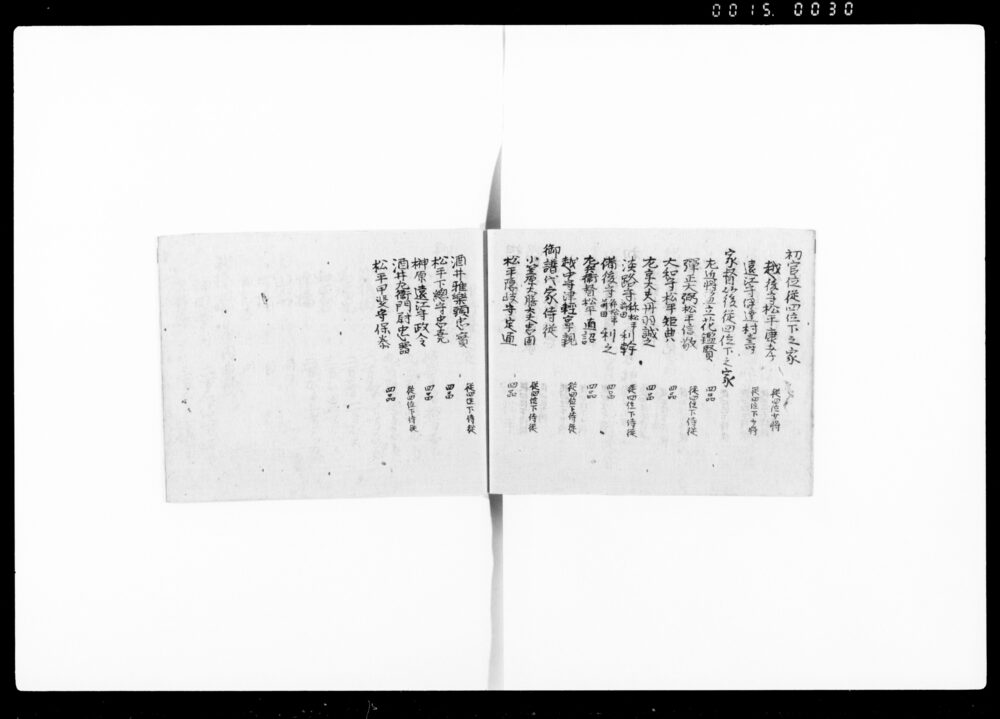 0015. 0030
初官位從四位下之家
越後守松平康孝 從四位少將
遠江守伊達村壽 從四位下少將
家督以後從四位下之家
左近將監立花鑑賢 四品
彈正大弼松平信敬 從四位下侍從
大和守松平矩典 四品
左京大夫丹羽 四品
淡路守 松平利幹 從四位下侍從
備後守 利之 四品
左兵衛督松平直 四品
越中守津輕寧親 從四位下侍從
御譜代家侍從
小笠原大膳大夫忠固 從四位下侍從
松平隱岐守定通 四品
酒井雅樂頭忠實 從四位下侍從
松平下總守忠堯 四品
榊原遠江守政令 四品
酒井左衛門尉忠器 從四位下侍從
松平甲斐守保泰 四品